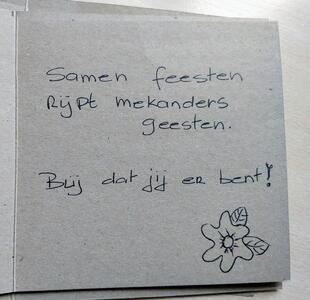 Samen feesten
Rijpt mekanders
geesten.
Blij dat jij er bent!